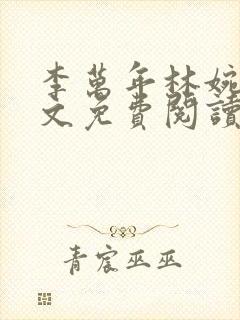 李萬年林婉
文免費閱讀
青宸巫巫